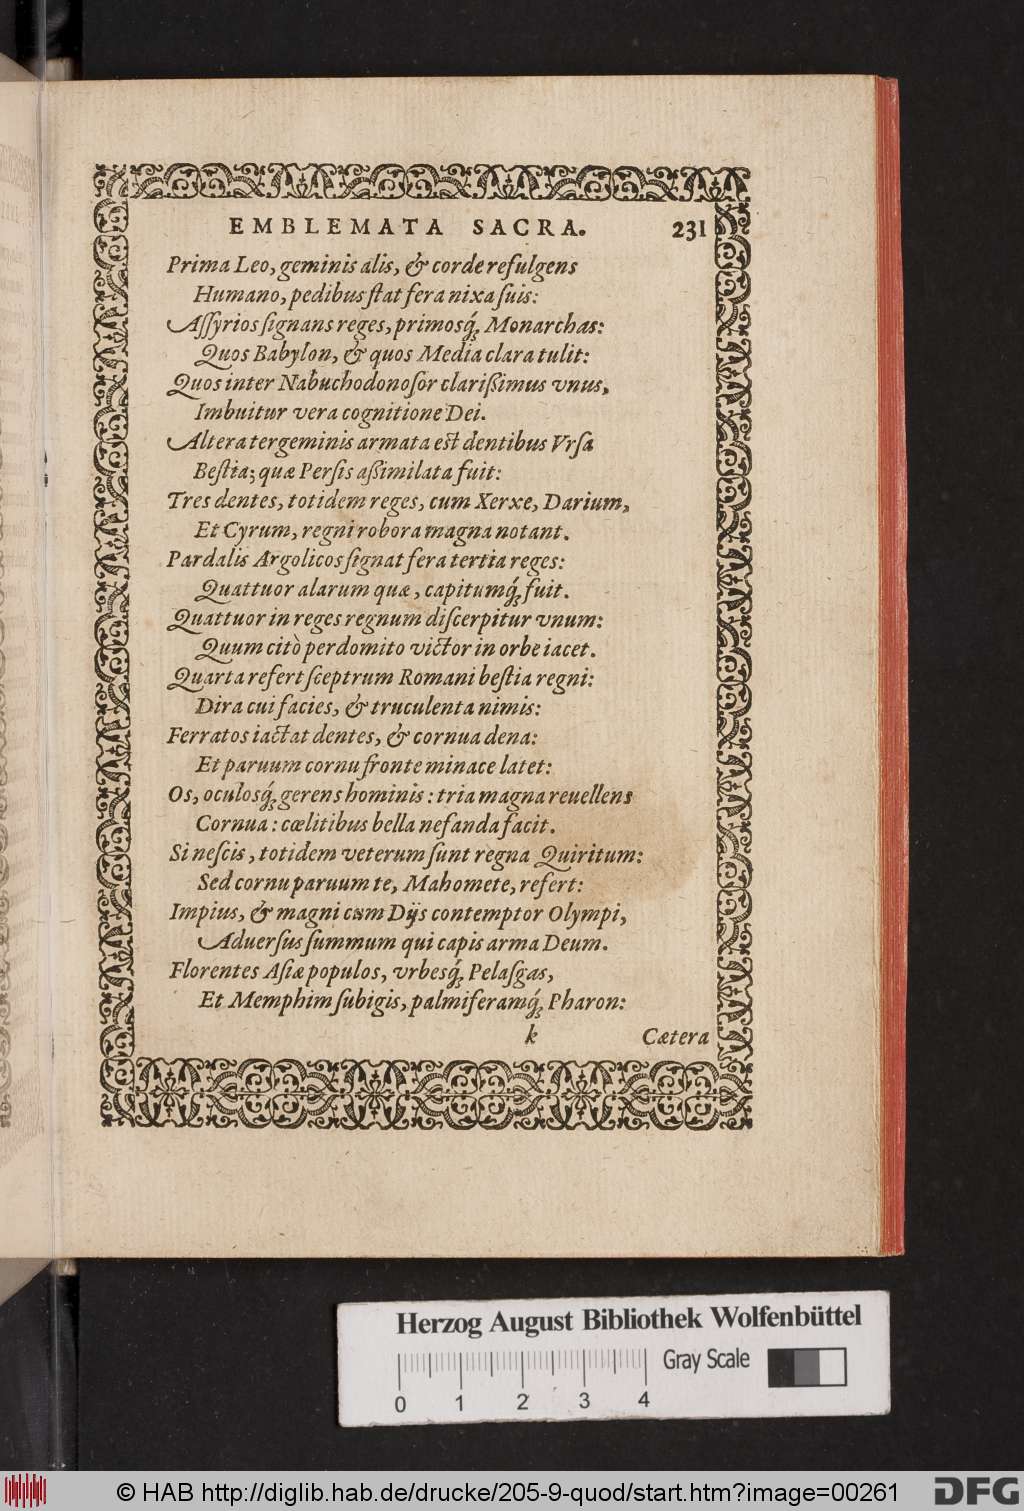 EMBLEMATA SACRA. 231
Prima Leo, geminis alis, & corde refulgens
Humano, pedibus ſtat fera nixa ſuis:
Aſſyrios ſignans reges, primosq́; Monarchas:
Quos Babylon, & quos Media clara tulit:
Quos inter Nabuchodonoſor clarißimus vnus,
Imbuitur vera cognitione Dei.
Altera tergeminis armata eſt dentibus Vrſa
Beſtia; quæ Perſis aßimilata fuit:
Tres dentes, totidem reges, cum Xerxe, Darium,
Et Cyrum, regni robora magna notant.
Pardalis Argolicos ſignat fera tertia reges:
Quattuor alarum quæ, capitumq́; fuit.
Quattuor in reges regnum diſcerpitur vnum:
Quum citò perdomito victor in orbe iacet.
Quarta refert ſceptrum Romani beſtia regni:
Dira cui facies, & truculenta nimis:
Ferratos iactat dentes, & cornua dena:
Et paruum cornu fronte minace latet:
Os, oculosq́; gerens hominis: tria magna reuellens
Cornua: cœlitibus bella nefanda facit.
Si neſcis, totidem veterum ſunt regna Quiritum:
Sed cornu paruum te, Mahomete, refert:
Impius, & magni cum Dijs contemptor Olympi,
Aduerſus ſummum qui capis arma Deum.
Florentes Aſiæ populos, vrbesq́; Pelaſgas,
Et Memphim ſubigis, palmiferamq́; Pharon:
k Cætera
Herzog August Bibliothek Wolfenbüttel
Gray Scale
0 1 2 3 4
© HAB http://diglib.hab.de/drucke/205-9-quod/start.htm?image=00261
DFG